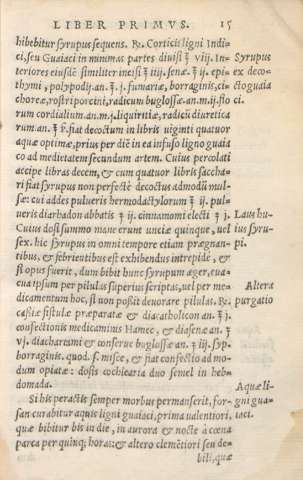 LIBER PRIMVS. 15
hibebitur syrupus sequens. ℞. Corticis ligni Indi-
ci, seu Guaiaci in minimas partes diuisi ℥ viij. In- Syrupus
teriores eiusdē similiter incisi ℥ iiij. senæ ℥ ij. epi- ex deco-
thymi, polypodij an. ℥ j. fumariæ, borraginis, ci- cto guaia
choreæ, rostri porcini, radicum buglossæ an. m. ij. flo ci.
rum cordialium an. m. j. liquiritiæ, radicū diuretica
rum an. ℥ ß. fiat decoctum in libris uiginti quatuor
aquæ optimæ, prius per diē in ea infuso ligno guaia
co ad medietatem secundum artem. Cuius percolati
accipe libras decem, & cum quatuor libris saccha-
ri fiat syrupus non perfectè decoctus admodū mul-
sæ: cui addes pulueris hermodactylorum ℥ ij. pul-
ueris diarhadon abbatis ℥ ij. cinnamomi electi ℥ j. Laus hu-
Cuius dosis summo mane erunt unciæ quinque, uel ius syru-
sex. hic syrupus in omni tempore etiam prægnan- pi.
tibus, & febrientibus est exhibendus intrepidè, &
si opus fuerit, dum bibit hunc syrupum æger, eua-
cua ipsum per pilulas superius scriptas, uel per me- Altera
dicamentum hoc, si non possit deuorare pilulas. ℞. purgatio
cassiæ fistulæ præparatæ & diacatholicon an. ℥ j.
confectionis medicaminis Hamec, & diasenæ an. ℥
vj. diacharthami & conseruæ buglossæ an. ℥ iij. syp.
borraginis. quod. s. misce, & fiat confectio ad mo-
dum opiatæ: dosis coclearia duo semel in heb-
domada. Aquæ li-
Si his peractis semper morbus permanserit, for- gni guaa-
san curabitur aquis ligni guaiaci, prima ualentiori, iaci.
quæ bibitur bis in die, in aurora & nocte à cœna
parca per quinq; horas: & altero clemētiori seu de-
bili, quæ